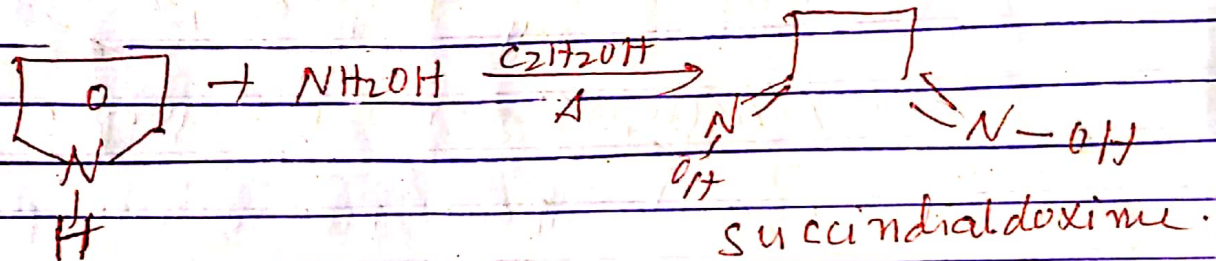 O + NH2OH C2H2OH
Δ
N = = N - OH
N OH
H
succindialdoxime.